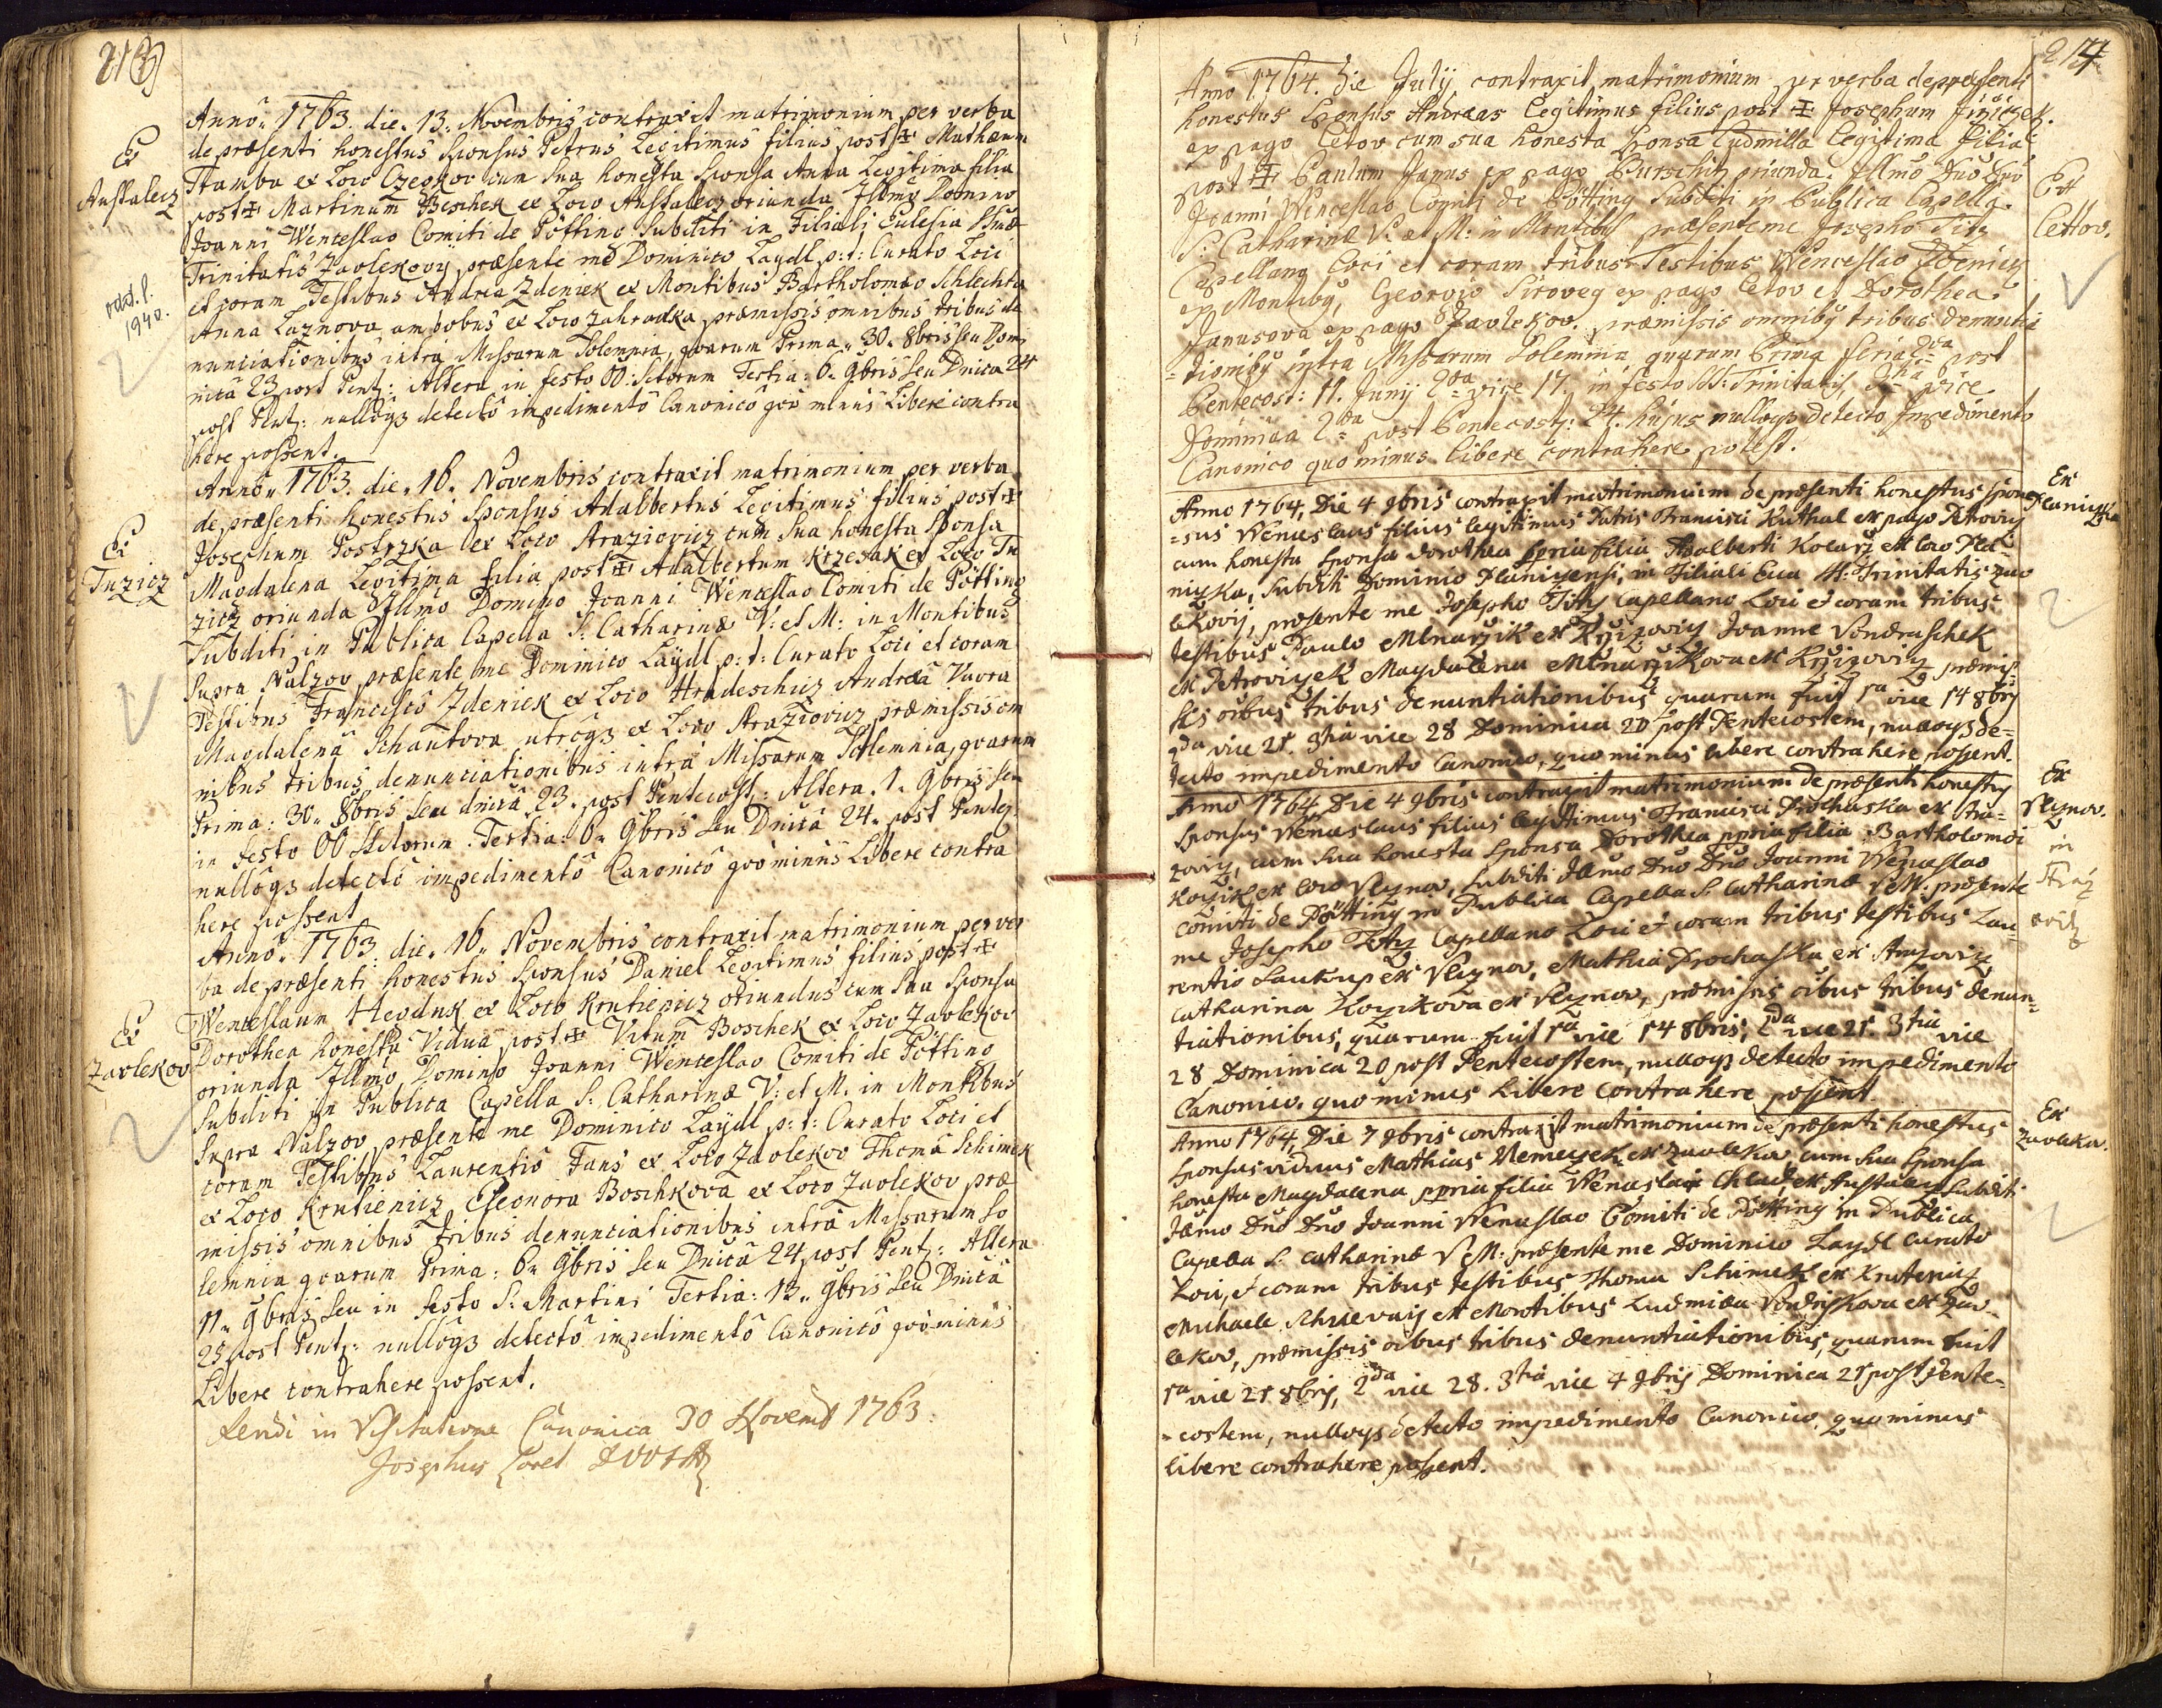 213
Ex
Austalecz
odd. l.
1940.
Anno 1763. die. 13. Novembris contraxit matrimonium per verba
de præsenti honestus Sponsus Petrus Legitimus filius post ✠ Mathæum
ex Loco cum sua honesta Sponsa Anna Legitima filia
post ✠ Martinum Beschek ex Loco Austalecz oriunda Illmo Domino
Joanni Wenceslao Comiti de Pötting Subditi in Filiali Eulesia SSmæ
Trinitatis Zavlekovy præsente me Dominico Laydl p: t: Curato Loci
et coram Testibus Andrea Zdeniek ex Montibus Bartholomæo Schlechta
Anna Laznova ambobus ex Loco Zahradka præmissis omnibus tribus de
nunciationibus intra Missarum Solemnia, qvarum Prima. 30. 8bris seu Dom
nica 23 post Pent: Altera in festo OO: Sctorum Tertia: 6. 9bris seu Dnica 24
post Pent: nullôqz detectô impedimentô Canonicô qvô minus Libere contra
here possent.
Ex
Tuzicz
Anno 1763. die. 16. Novembris contraxit matrimonium per verba
de præsenti honestus Sponsus Adalbertus Legitimus filius post ✠
Josephum Postrzka ex Loco Straziovicz cum sua honesta Sponsa
Magdalena Legitima filia post ✠ Adalbertum Krzesak ex Loco Tu
zicz oriunda Illmo Domino Joanni Wenceslao Comiti de Pötting
Subditi in Publica Capella S: Catharinæ V: et M: in Montibus
supra Nalzov præsente me Dominico Laydl p: t: Curato Loci et coram
Testibus Francisco Zdeniek ex Loco Hradeschicz Andreâ Vavra
Magdalenâ Schautova utrôqz ex Loco Straziovicz præmissis om
nibus tribus denunciationibus intra Missarum Solemnia, qvarum
Prima: 30. 8bris seu dnicâ 23. post Pentecost: Altera. 1. 9bris seu
in festo OO Sctorum. Tertia. 6. 9bris seu Dnicâ 24. post Pentes
nullôqz detectô impedimentô Canonicô qvô minus Libere contra
here possent
Ex
Zavlekov
Anno 1763. die. 16. Novembris contraxit matrimonium per ver
ba de præsenti honestus Sponsus Daniel Legitimus filius post ✠
Wenceslaum Hevduk ex Loco Krutienicz oriundus cum sua Sponsa
Dorothea honesta Vidua post ✠ Vitum Boschek ex Loco Zavlekov
oriunda Illmo Domino Joanni Wenceslao Comiti de Pötting
Subditi in Publica Capella S: Catharinæ V: et M. in Montibus
supra Nalzov præsente me Dominico Laydl p: t: Curato Loci et
coram Testibus Laurentio Jans ex Loco Zavlekov Thomâ Schimek
ex Loco Krutienicz Eleonora Boschkova ex Loco Zavlekov præ
missis omnibus tribus denunciationibus intra Missarum So
lemnia qvarum Prima: 6. 9bris seu Dnicâ 24 post Pent: Altera
11. 9bris seu in festo S: Martini Tertia: 13. 9bris seu Dnicâ
25 post Pent: nullôqz detectô impedimentô Canonicô qvô minus
Libere contrahere possent.
in Visitatione Canonica 30 Novemb 1763.
Josephus
214
Anno 1764. die Julij contraxit matrimonium per verba de præsenti
honestus Sponsus Andreas legitimus filius post ✠ Josephum
ex pago Letov cum sua honesta Sponsa Ludmilla legitima filia
post ✠ Paulum Janus ex pago oriunda. Illmo Dno Dno
Joanni Wenceslao Comiti de Pötting Subditi in Publica Capella
S: Catharinæ V: et M: in Montibus præsente me Josepho Titz
Capellano Loci et coram tribus Testibus Wenceslao Zdeniek
ex Montibus, Georgio Siroveg ex pago Letov et Dorothea
Janusova ex pago Zavlekov. præmissis omnibus tribus denuntia
tionibus intra Missarum Solemnia quarum Prima feria 2da post
Pentecost: 11. Junij 2da vice 17. in festo SS: Trinitatis, 3tia vice
Dominica 2da post Pentecost: 24. hujus nulloqz detecto Impedimento
Canonico quo minus libere contrahere potest.
Ex
Lettov.
Anno 1764, Die 4 9bris contraxit matrimonium de præsenti honestus spon
=sus Wenceslaus filius legitimus Patris Francisci Kuthal ex pago Petrovicz
cum honesta sponsa Dorothea ppria filia Adalberti Kolarz ex loco Pla
niczka, subditi Dominio Planicensi, in Filiali Ecca SS: Trinitatis Zav
lekovij, præsente me Josepho Titz Capellano Loci et coram tribus
testibus Paulo Mlnarzik ex Krzizovicz Joanne Vondraschek
ex Petroviczek Magdalena Mlnarzikova ex Krzizovicz præmis
sis oibus tribus denuntiationibus quarum fuit 1ma vice 14 8bris
2da vice 21. 3tia vice 28 Dominica 20 post Pentecostem, nulloqz de=
tecto impedimento Canonico, quo minus libere contrahere possent.
Ex
Planiczka
Anno 1764 Die 4 9bris contraxit matrimonium de præsenti honestus
sponsus Wenceslaus filius legitimus Francisci Prochaska ex Stra=
zovicz, cum sua honesta sponsa Dorothea ppria filia Bartholomæi
Kozik ex loco Veznov, subditi Illmo Dno Dno Joanni Wenceslao
Comiti de Pötting in Publica Capella S. Catharinæ V et M: præsente
me Josepho Titz Capellano Loci et coram tribus testibus Lau=
rentio Saukup ex Veznov, Mathia Prochaska ex Strazovicz
Catharina Kozikova ex Veznov, præmissis oibus tribus denun=
tiationibus, quarum fuit 1ma vice 14 8bris, 2da vice 21 3tia vice
28 Dominica 20 post Pentecostem, nulloqz detecto impedimento
Canonico, quo minus libere contrahere possent.
Ex
Veznov.
in
Anno 1764, Die 7 9bris contraxit matrimonium de præsenti honestus
sponsus viduus Mathias Nemeczek ex Zavlekov cum sua sponsa
honesta Magdalena ppria filia Wenceslai Chlad ex Austalecz subditi
Illmo Dno Dno Joanni Wenceslao Comiti de Pötting in Publica
Capella S: Catharinæ V et M: præsente me Dominico Laydl Curato
Loci, et coram tribus testibus Thoma Schimek ex Krutenicz
Michaele ex Montibus Ludmila ex Zav
lekov, præmissis oibus tribus denuntiationibus, quarum fuit
1ma vice 21 8bris, 2da vice 28. 3tia vice 4 9bris Dominica 21 post Pente=
=costem, nulloqz detecto impedimento Canonico, quominus
libere contrahere possent.
Ex
Zavlekov.